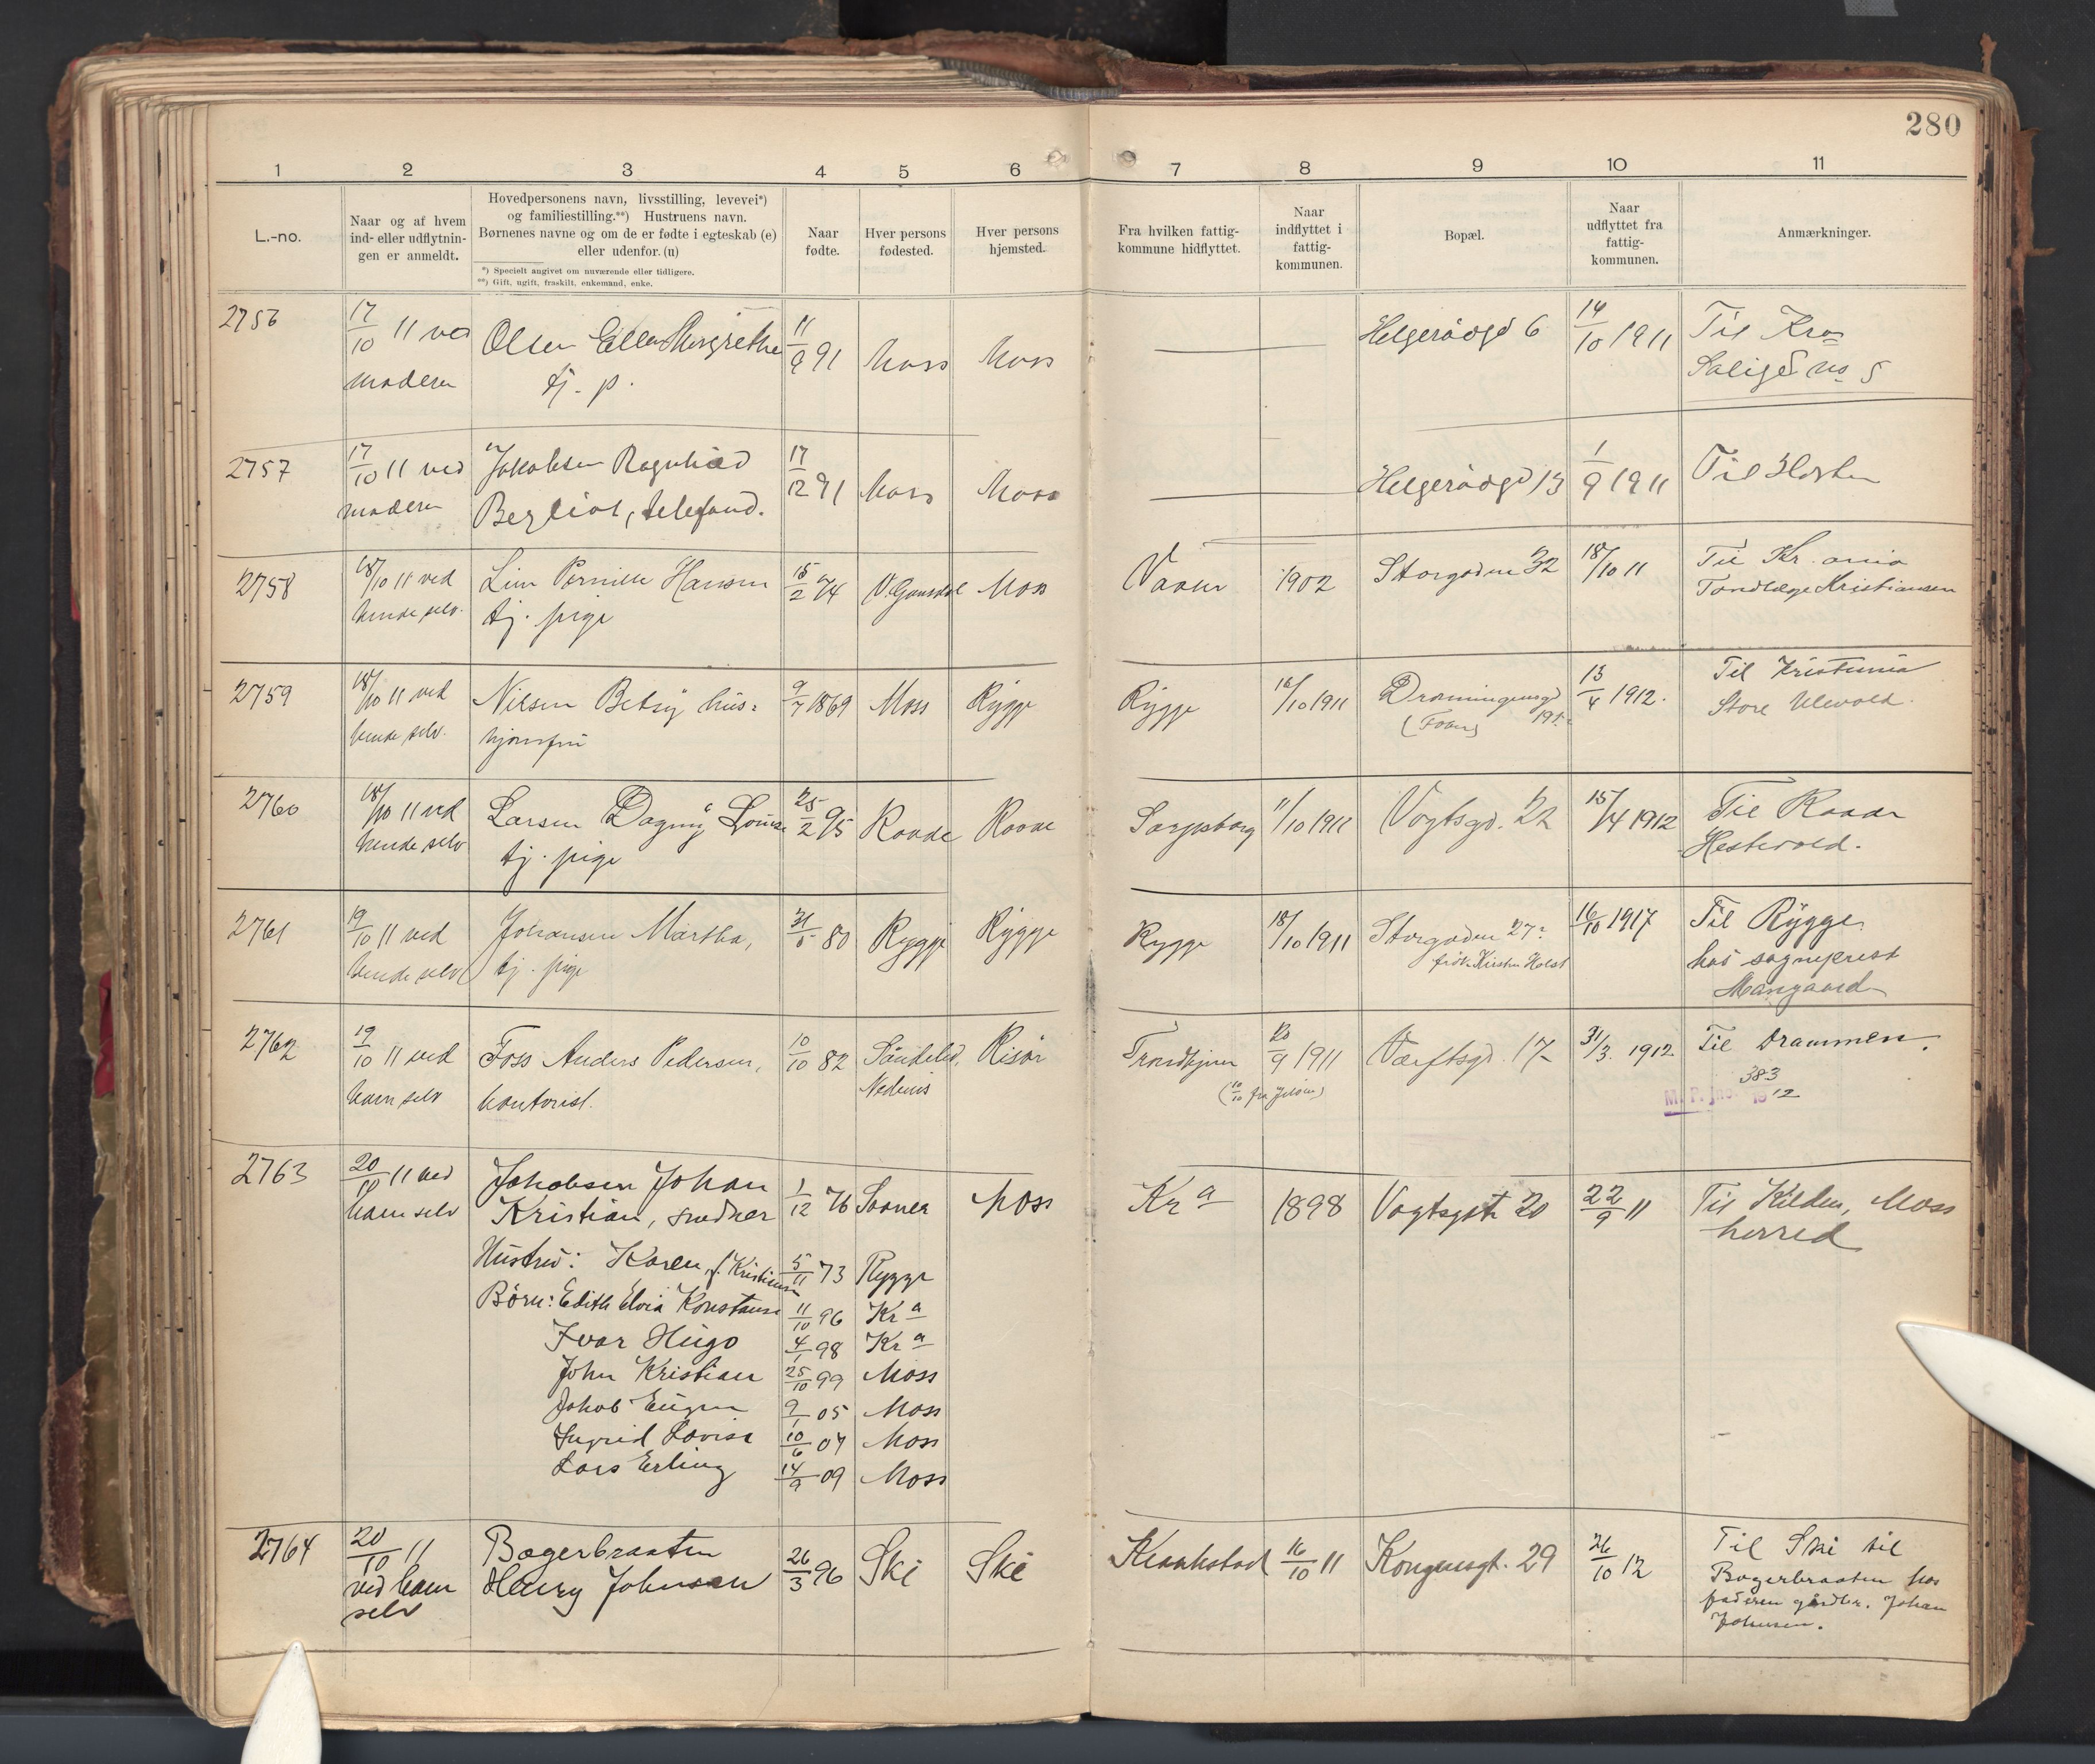 280
1 2 3 4 5 6 7 8 9 10 11
L.-no.
Naar og af hvem
ind- eller udflytnin-
gen er anmeldt.
Hovedpersonens navn, livsstilling, levevei*)
og familiestilling.**) Hustruens navn.
Børnenes navne og om de er fødte i egteskab (e)
eller udenfor. (u)
*) Specielt angivet om nuværende eller tidligere.
**) Gift, ugift, fraskilt, enkemand, enke.
Naar
fødte.
Hver persons
fødested.
Hver persons
hjemsted.
Fra hvilken fattig-
kommune hidflyttet.
Naar
indflyttet i
fattig-
kommunen.
Bopæl.
Naar
udflyttet fra
fattig-
kommunen.
Anmærkninger.
2756 17/10 11 ved Olsen Ellen Margrethe 11/9 91 Moss Moss Helgerødgd 6 14/10 1911 Til Kra
moderen tj. p. no 5
2757 17/10 11 ved Jakobsen Ragnhild 17/12 91 Moss Moss Helgerødgd 13 1/9 1911 Til Horten
moderen Bergliot, telefond.
2758 18/10 11 ved Lina Pernille Hansen 15/2 74 Moss Vaaler 1902 Storgaden 32 18/10 11 Til Kr.ania
hende selv. tj. pige Tandlæge Kristiansen
2759 18/10 11 ved Nilsen Betsy hus- 9/7 1869 Moss Rygge Rygge 16/10 1911 Dronningensgd 19 13/4 1912. Til Kristiania
hende selv. hjonsfru Store Ulevold.
2760 18/10 11 ved Larsen Dagny Louise 25/2 95 Raade Raade Sarpsborg 11/10 1911 Vogtsgd. 22 15/4 1912 Til Raade
hende selv tj. pige Hestevold.
2761 19/10 11 ved Johansen Martha, 31/5 80 Rygge Rygge Rygge 18/10 1911 Storgaden 27 16/10 1917 Til Rygge
hende selv tj. pige frøk. Kirsten Holst hos sogneprest
2762 19/10 11 ved Foss Anders Pedersen, 10/10 82 Søndeled, Risør Trondhjem 20/9 1911 Værftsgd. 17 31/3. 1912 Til Drammen.
ham selv kontorist. Nedenes (10/10 fra Jeløen) 383
M. P. Jno. 1912
2763 20/10 11 ved Jakobsen Johan
ham selv Kristian, snedker 1/12 76 Saaner Moss Kra 1898 Vogtsgt 20 22/9 11 Til Kilden, Moss
herred
Hustru: Karen, f. Kristiansen 5/11 73 Rygge
Børn: Edith Elvia Konstanse 11/10 96 Kra
Ivar Hugo 4/1 98 Kra
John Kristian 25/10 99 Moss
Jakob Eugen 9/1 05 Moss
Ingrid Lovise 10/6 07 Moss
Lars Erling 14/9 09 Moss
2764 20/10 11 Bøgerbraaten
ved ham Henry Johnsen 26/3 96 Ski Ski Kraakstad 16/10 11 Kongensgt. 29 26/10 12 Til Ski til
selv Bøgerbraaten hos
faderen gårdbr. Johan
Johnsen.